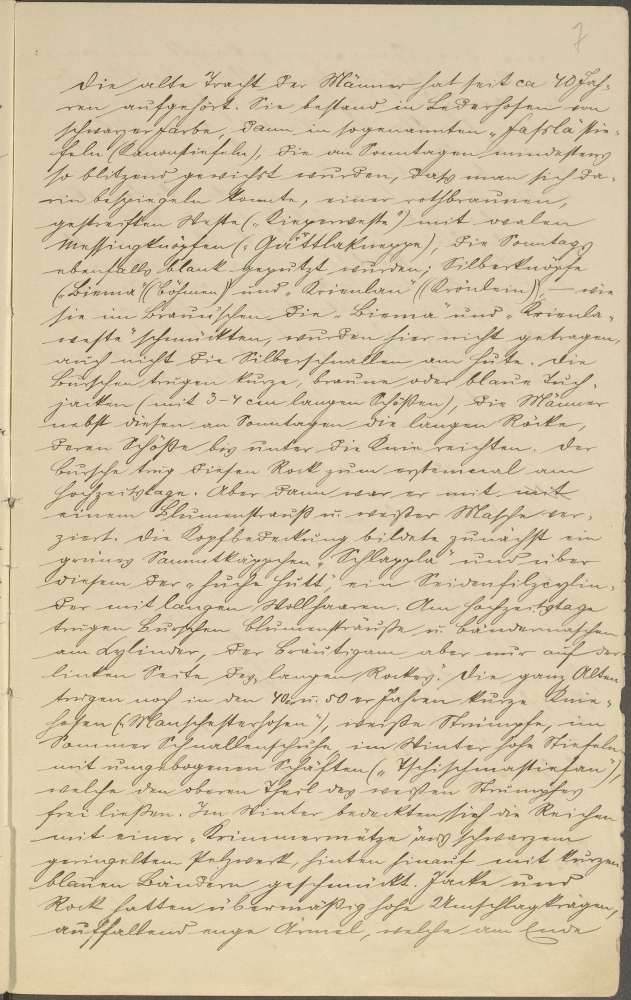 7
Die alte Tracht der Männer hat seit ca 40 Jah-
ren aufgehört. Sie bestand in Lederhosen von
schwarzer Farbe, dann in sogenannten „Faßla" Stie-
feln (Kanonstiefeln), die an Sonntagen mindestens
so blitzend gewichst wurden, daß man sich da-
rin bespiegeln konnte, einer rothbraunen,
gestreiften Weste („Kieperweste") mit ovalen
Messingknöpfen („Gättlakneppe), die Sonntags
ebenfalls blank geputzt wurden; Silberknöpfe
(„Biema" (Böhmen) und „Krienlan" (Krönlein)), – wie
sie im Braunschen die „Biema" und „Krienla-
weste" schmückten, wurden hier nicht getragen,
auch nicht die Silberschnallen am Hute. Die
Burschen trugen kurze, braune oder blaue Tuch-
jacken (mit 3-4 cm langen Schößen), die Männer
nebst diesen an Sonntagen die langen Röcke,
deren Schöße bis unter die Knie reichten. Der
Bursche trug diesen Rock zum erstenmal am
Hochzeitstage. Aber dann war er mit mit
einem Blumenstrauß u. weißer Masche ver-
ziert. Die Kopfbedeckung bildete zunächst ein
grünes Sammtkäppchen „Schlappla" und über
diesem der „huche Hutt", ein Seidenfilzcylin-
der mit langen Wollhaaren. Am Hochzeitstage
trugen Burschen Blumensträuße u. Bändermaschen
am Cylinder, der Bräutigam aber nur auf der
linken Seite des langen Rockes. Die ganz Alten
trugen noch in den 40er u. 50er Jahren kurze Knie-
hosen („Manschesterhosen"), weiße Strümpfe, im
Sommer Schnallenschuhe, im Winter hohe Stiefeln
mit umgebogenen Schäften („Tschischmastiefan"),
welche den oberen Theil des weißen Strumpfes
frei ließen. Im Winter bedeckten sich die Reichen
mit einer „Krimmermütze" aus schwarzem
geringeltem Pelzwerk, hinten hinauf mit kurzen
blauen Bändern geschmückt. Jacke und
Rock hatten übermäßig hohe Umschlagkrägen,
auffallend enge Ärmel, welche am Ende